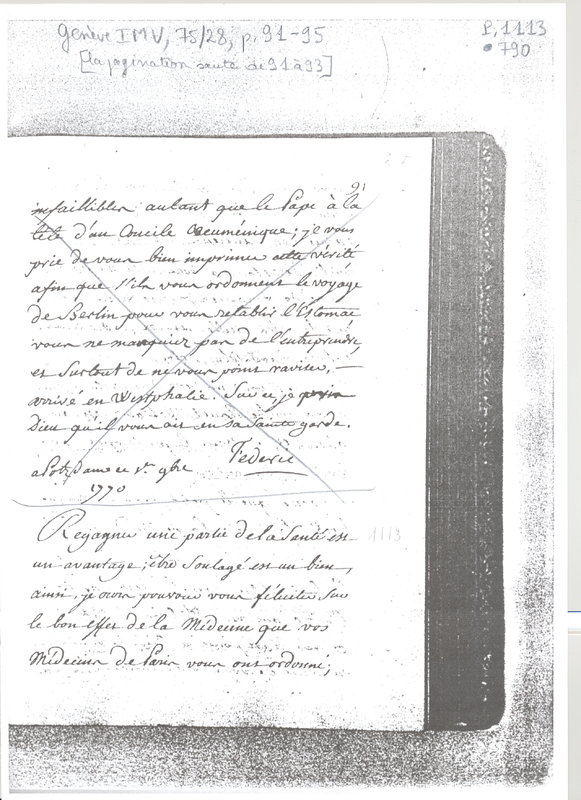 Genève IMV, 75/28, p. 91-95
[la pagination saute de 91 à 93]
P. 1113
790
91
infaillibles autant que le Pape à la
tête d'un Concile Œcuménique; je vous
prie de vous bien imprimer cette vérité
afin que s'ils vous ordonnent le voyage
de Berlin pour vous retablir l'Estomac
vous ne manquiez pas de l'entreprendre,
et Surtout de ne vous point raviser, —
arrivé en Westphalie. Sur ce, je prie
Dieu qu'il vous ait en sa Sainte garde.
Féderic
a Potzdam ce 1er 9bre
1770
Regagner une partie de la Santé est
1113
un avantage; être Soulagé est un bien,
ainsi, je crois pouvoir vous féliciter Sur
le bon effet de la Médecine que vos
Médecins de Paris vous ont ordonné;